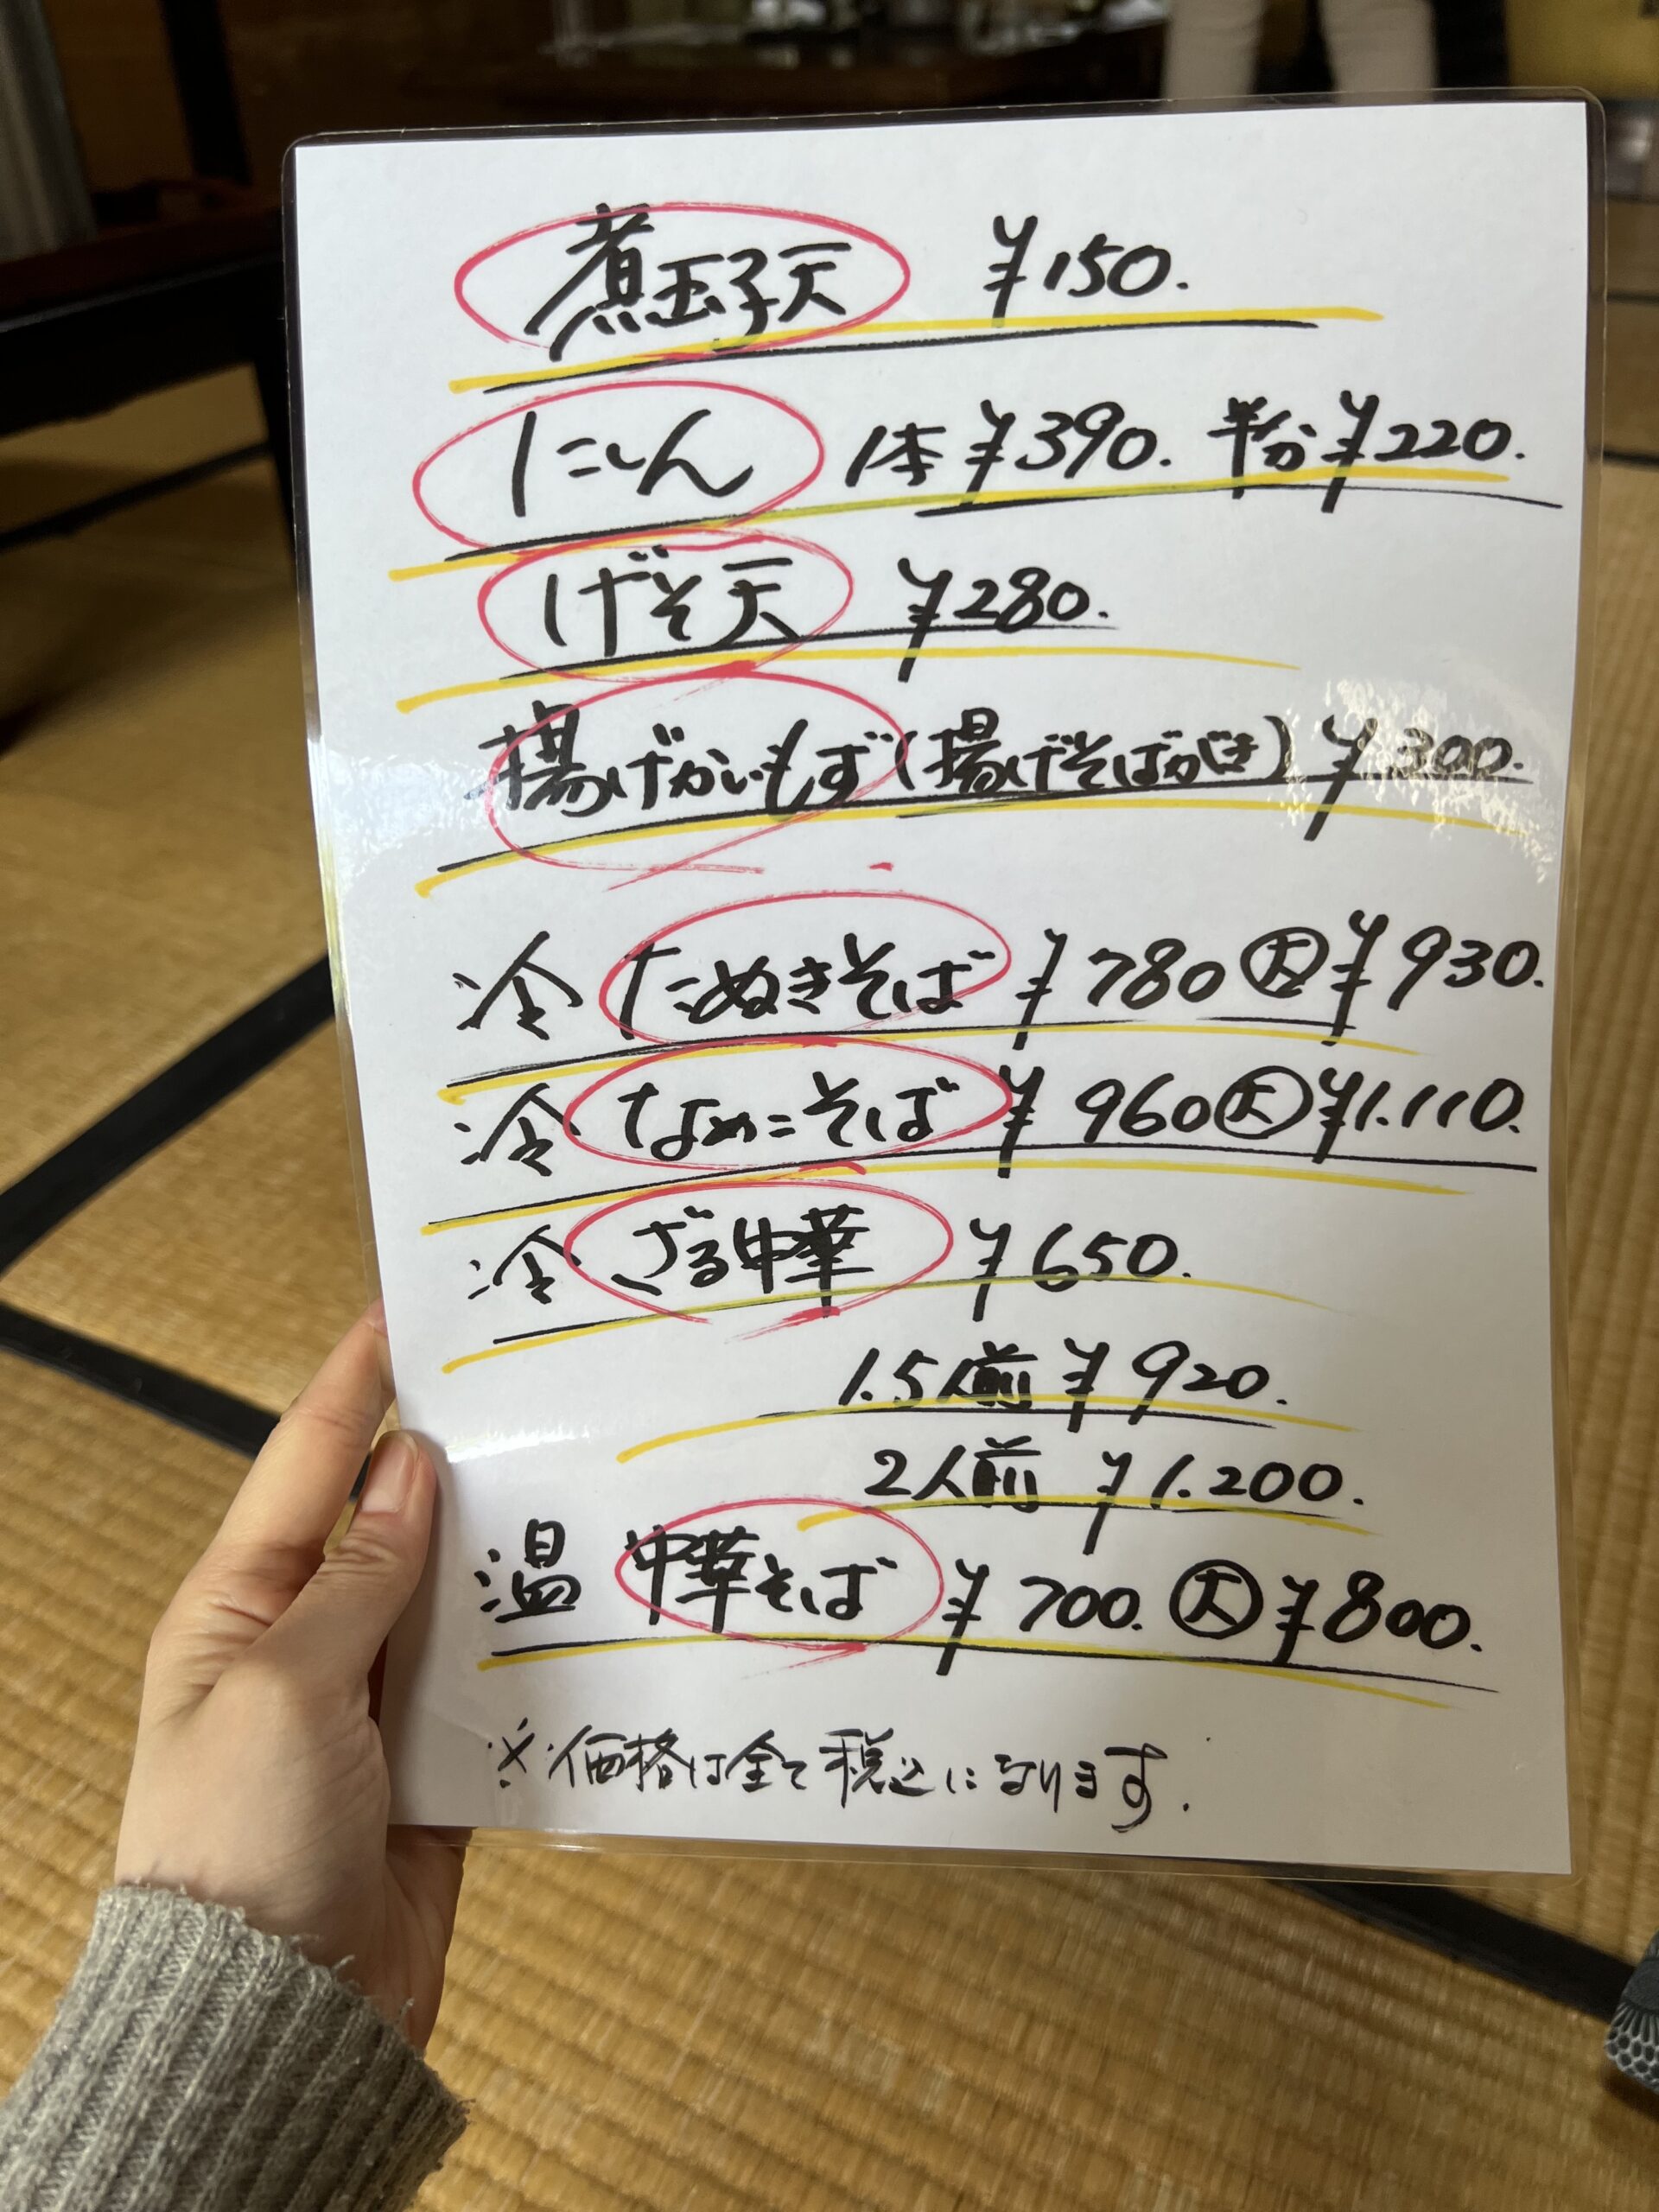 煮玉子天 ¥150.
にしん 1本 ¥390. 半分 ¥220.
げそ天 ¥280.
揚げかいもず(揚げそばがき) ¥300.
冷 たぬきそば ¥780 大 ¥930.
冷 なめこそば ¥960 大 ¥1.110.
冷 ざる中華 ¥650.
1.5人前 ¥920.
2人前 ¥1.200.
温 中華そば ¥700. 大 ¥800.
※価格は全て税込になります.